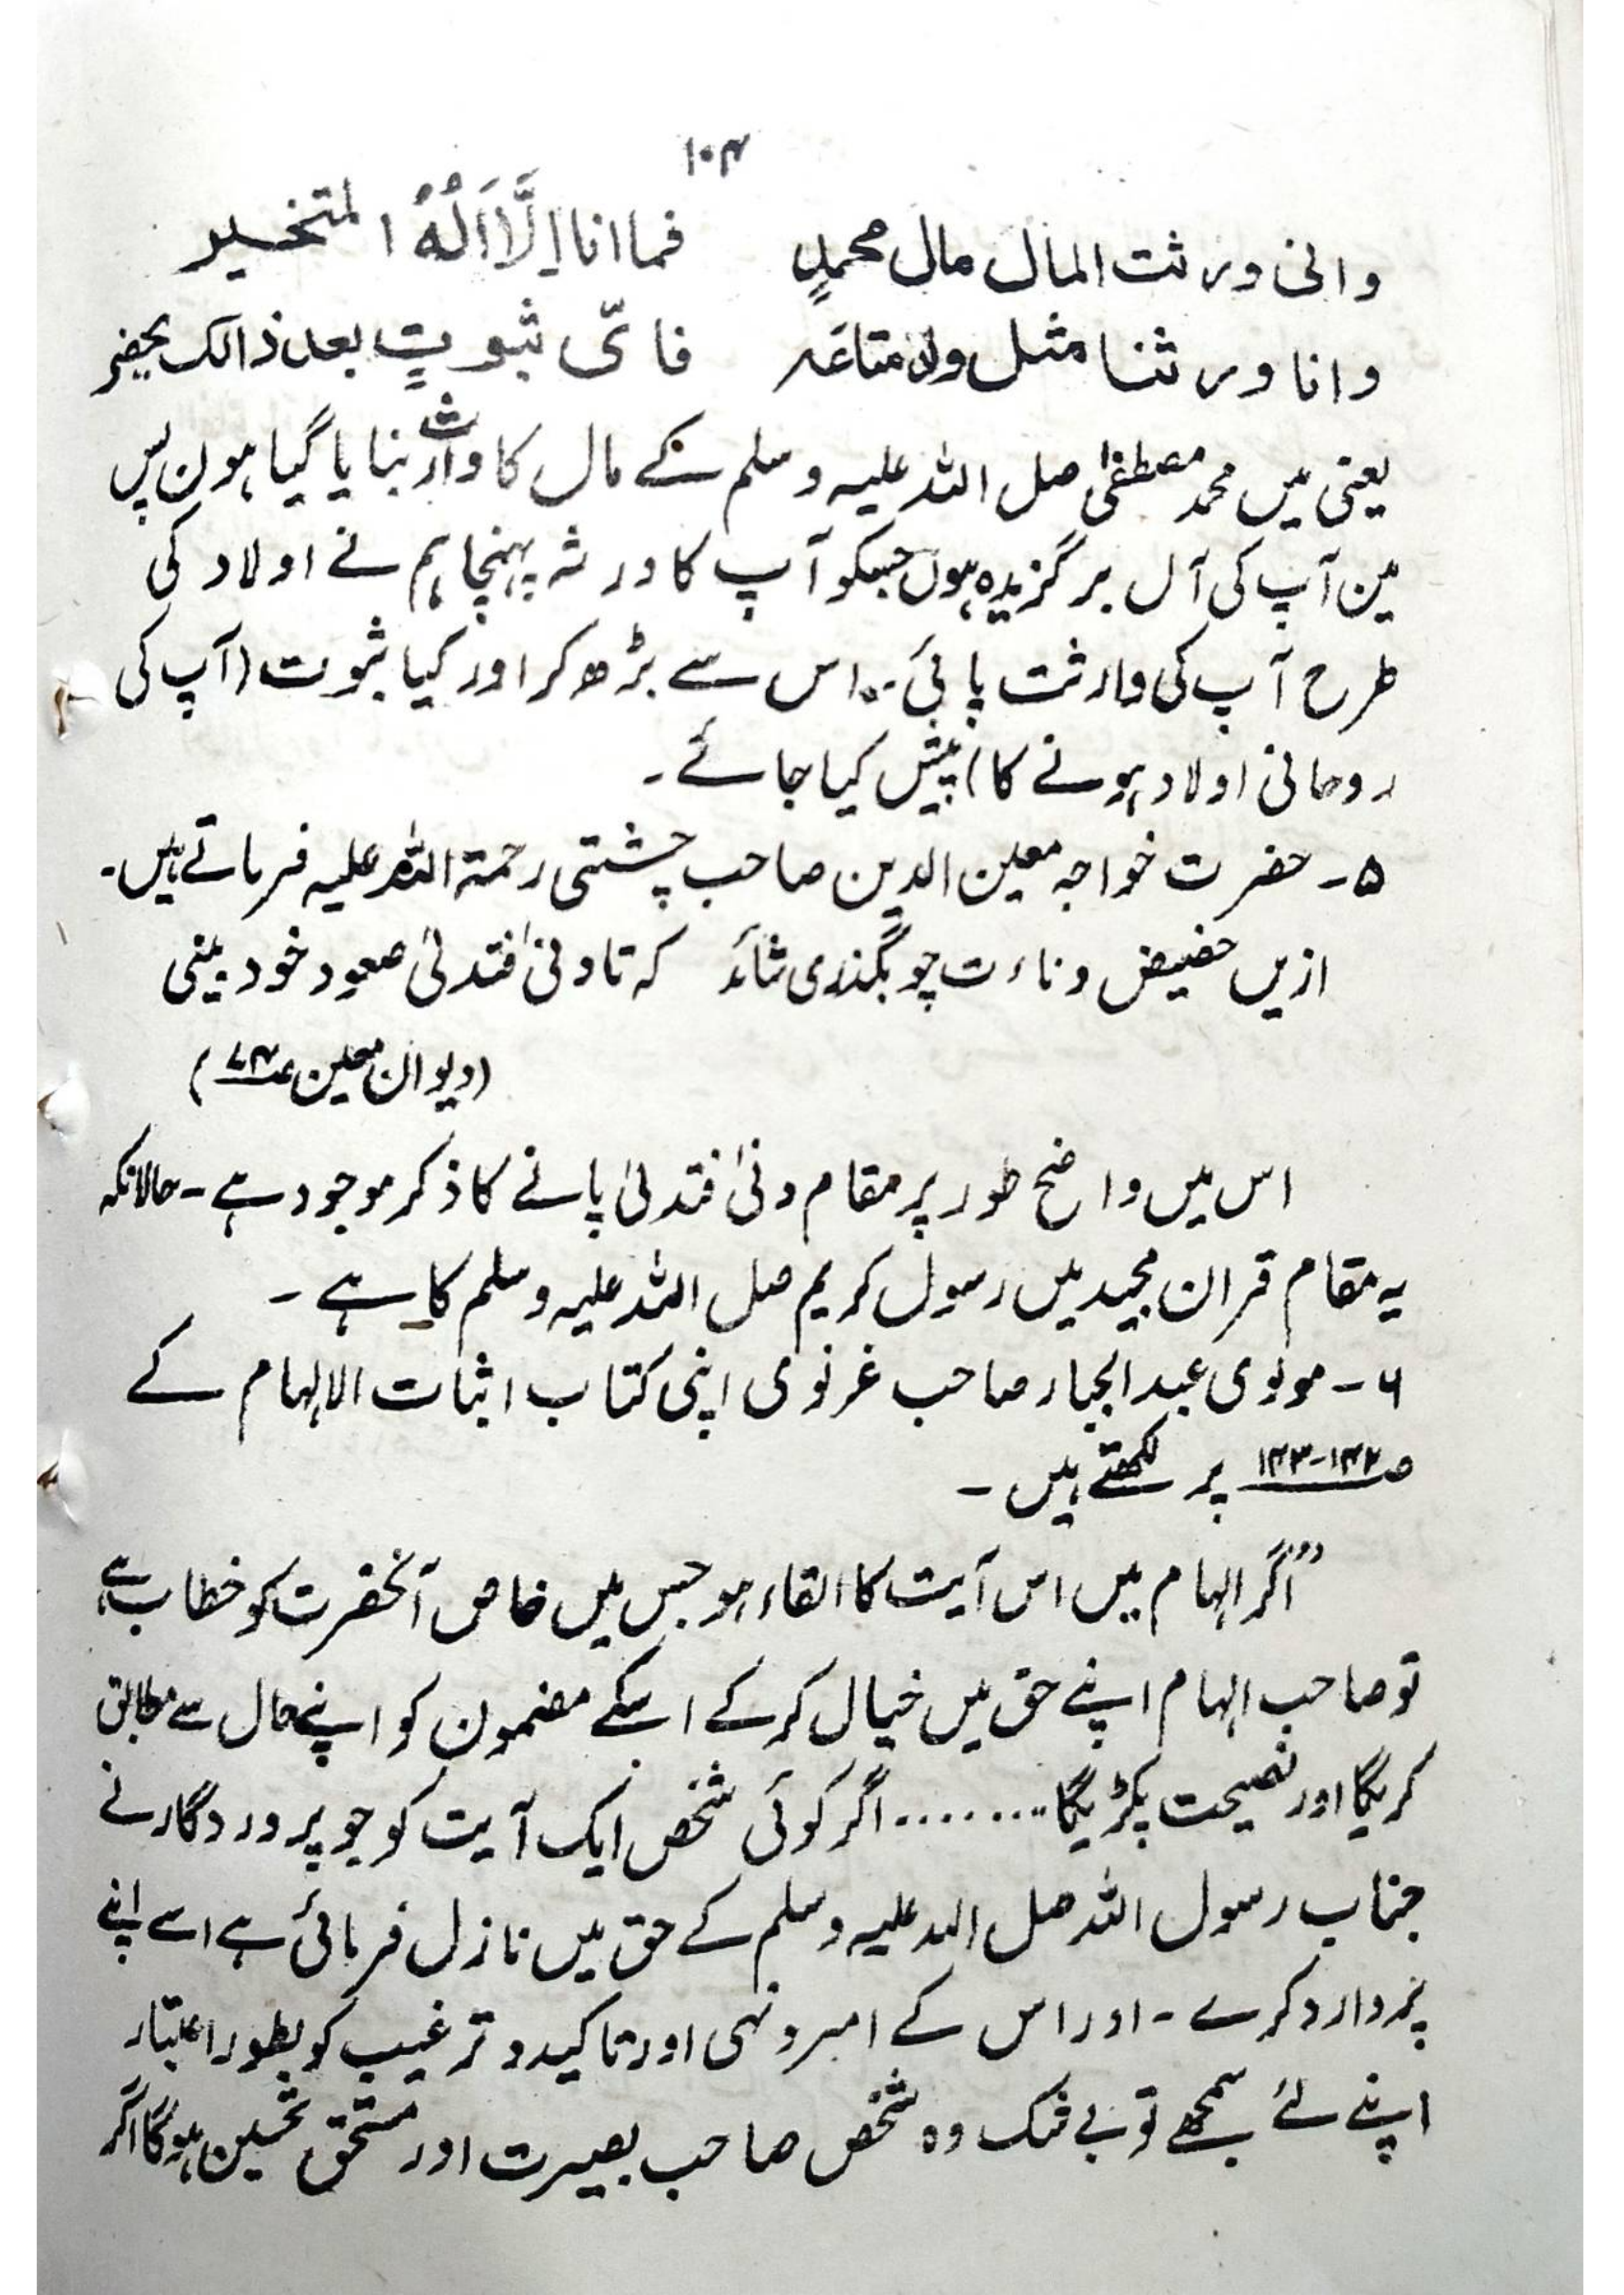 ۱۰۴
وانی ورثت المال مال محمدٍ فما انا اِلَّا اَلُہُ المتخیر
وانا ورثنا مثل ولد متاعہ فایّ ثبوتٍ بعد ذالک یحضر
یعنی میں محمد مصطفیٰ صل اللہ علیہ وسلم کے مال کا وارث بنایا گیا ہون پس
مین آپ کی آل برگزیدہ ہوں جسکو آپ کا ورثہ پہنچا ہم نے اولاد کی
طرح آپ کی وارثت پائی ۔۔ اس سے بڑھ کر اور کیا ثبوت (آپ کی
روحانی اولاد ہونے کا) پیش کیا جائے ۔
۵ ۔ حضرت خواجہ معین الدین صاحب چشتی رحمۃ اللہ علیہ فرماتے ہیں۔
ازیں حضیض دناءت چو بگذری شائد کہ تا دنیٰ فتدلیٰ صعود خود بینی
(دیوان معین ۷۴)
اس میں واضح طور پر مقام دنیٰ فتدلیٰ پانے کا ذکر موجود ہے ۔ حالانکہ
یہ مقام قران مجید میں رسول کریم صل اللہ علیہ وسلم کا ہے ۔
۶ ۔ مولوی عبد الجبار صاحب غزنوی اپنی کتاب اثبات الالہام کے
صـ ۱۴۲-۱۴۳ پر لکھتے ہیں ۔
"اگر الہام میں اس آیت کا القاء ہو جس میں خاص آنحضرت کو خطاب ہے
تو صاحب الہام اپنے حق میں خیال کر کے اسکے مضمون کو اپنے حال سے مطابق
کریگا اور نصیحت پکڑیگا ......... اگر کوئی شخص ایک آیت کو جو پروردگار نے
جناب رسول اللہ صل اللہ علیہ وسلم کے حق میں نازل فرمائی ہے اسے اپنے
پر وارد کرے ۔ اور اس کے امر و نہی اور تاکید و ترغیب کو بطور اعتبار
اپنے لئے سمجھے تو بے شک وہ شخص صاحب بصیرت اور مستحق تحسین ہوگا اگر